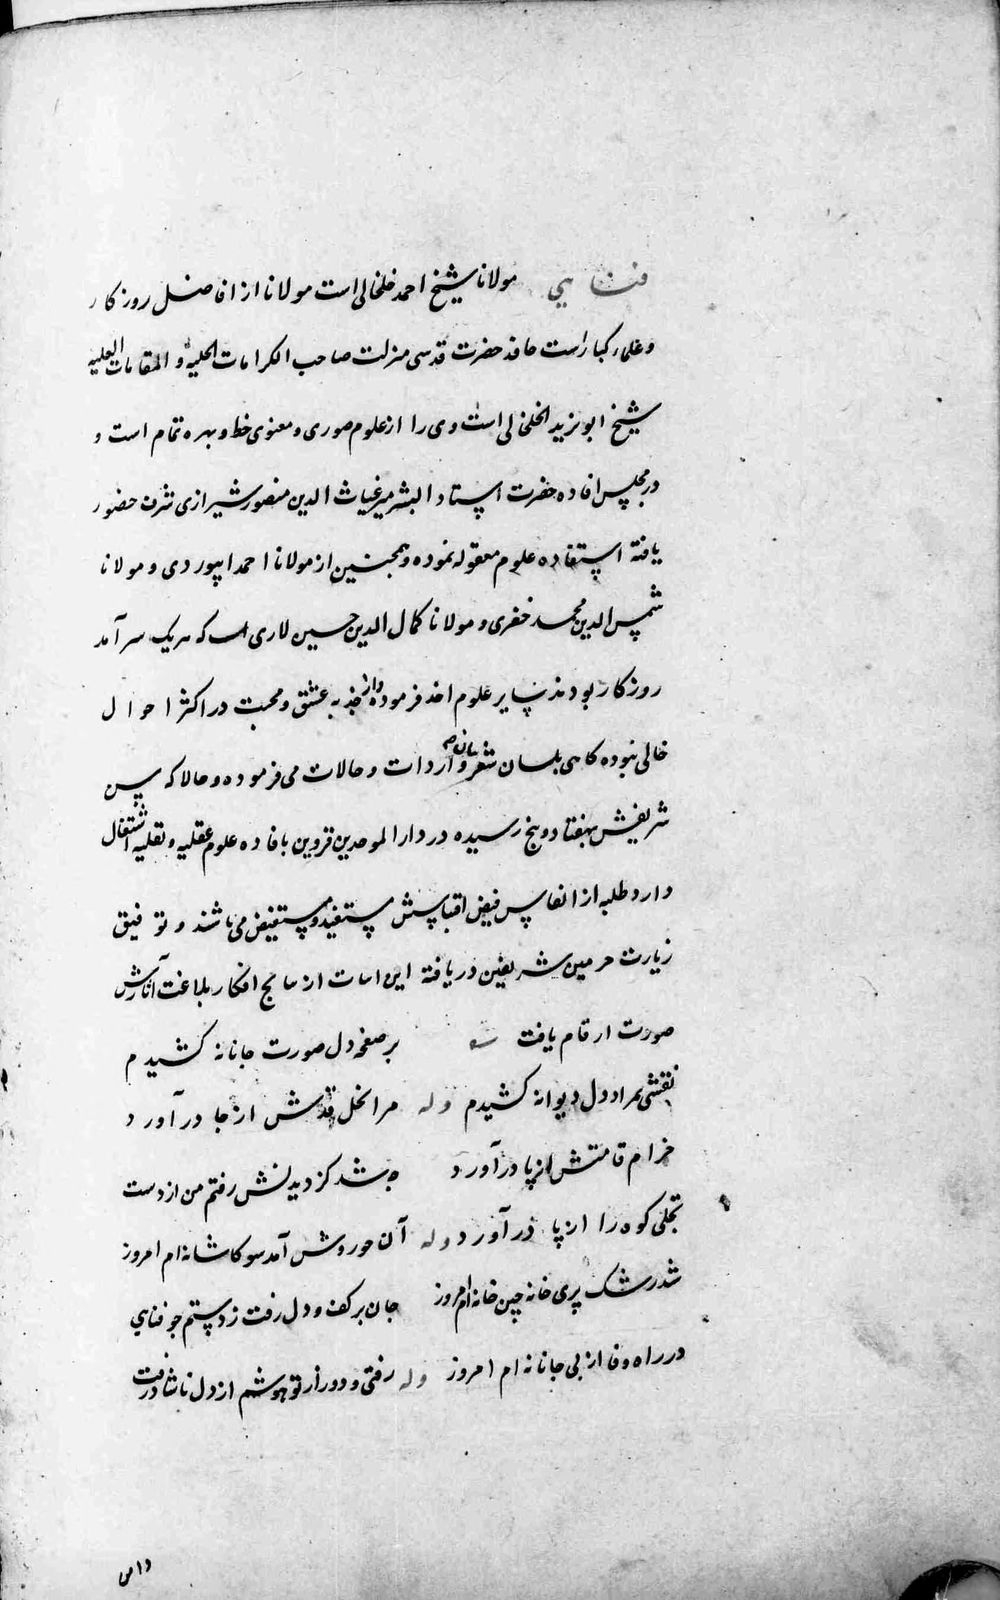 فنایی مولانا شیخ احمد خلخالی است مولانا از افاضل روزکار
و علماء کبار است حافد حضرت قدسی منزلت صاحب الکرامات الجلیه و المقامات العلیه
شیخ ابویزید الخلخالی است وی را از علوم صوری و معنوی خط و بهره تمام است و
در مجلس افاده حضرت استاد البشر میر غیاث الدین منصور شیرازی شرف حضور
یافته استفاده علوم معقوله نموده و همچنین از مولانا احمد ابیوردی و مولانا
شمس الدین محمد خفری و مولانا کمال الدین حسین لاری که هریک سرآمد
روزکار بودند سایر علوم اخذ فرموده و از جذبه عشق و محبت در اکثر احوال
خالی نبوده کاهی بلسان شعر بیان واردات و حالات می فرموده و حالا که سن
شریفش بهفتاد و پنج رسیده در دار الموحدین قزوین بافاده علوم عقلیه و نقلیه اشتغال
دارد طلبه از انفاس فیض اقتباسش مستفید و مستفیض می باشند و توفیق
زیارت حرمین شریفین دریافته این ابیات از نتایج افکار بلاغت آثارش
صورت ارقام یافت بر صفحه دل صورت جانانه کشیدم
نقشی بمراد دل دیوانه کشیدم وله مرا نخل قدش از جا درآورد
خرام قامتش از پا درآورد چه شد کز دیدنش رفتم من از دست
تجلی کوه را از پا درآورد وله آن حوروش آمد سو کاشانه ام امروز
شد رشک پری خانه چین خانه ام امروز جان بر کف و دل رفت ز دستم چو فنایی
در راه وفا از پی جانانه ام امروز وله رفتی و دور از تو هوشم از دل ناشاد رفت